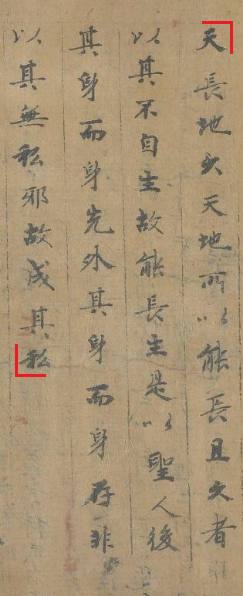 天長地久天地所以能長且久者
以其不自生故能長生是以聖人後
其身而身先外其身而身存非
以其無私邪故成其私